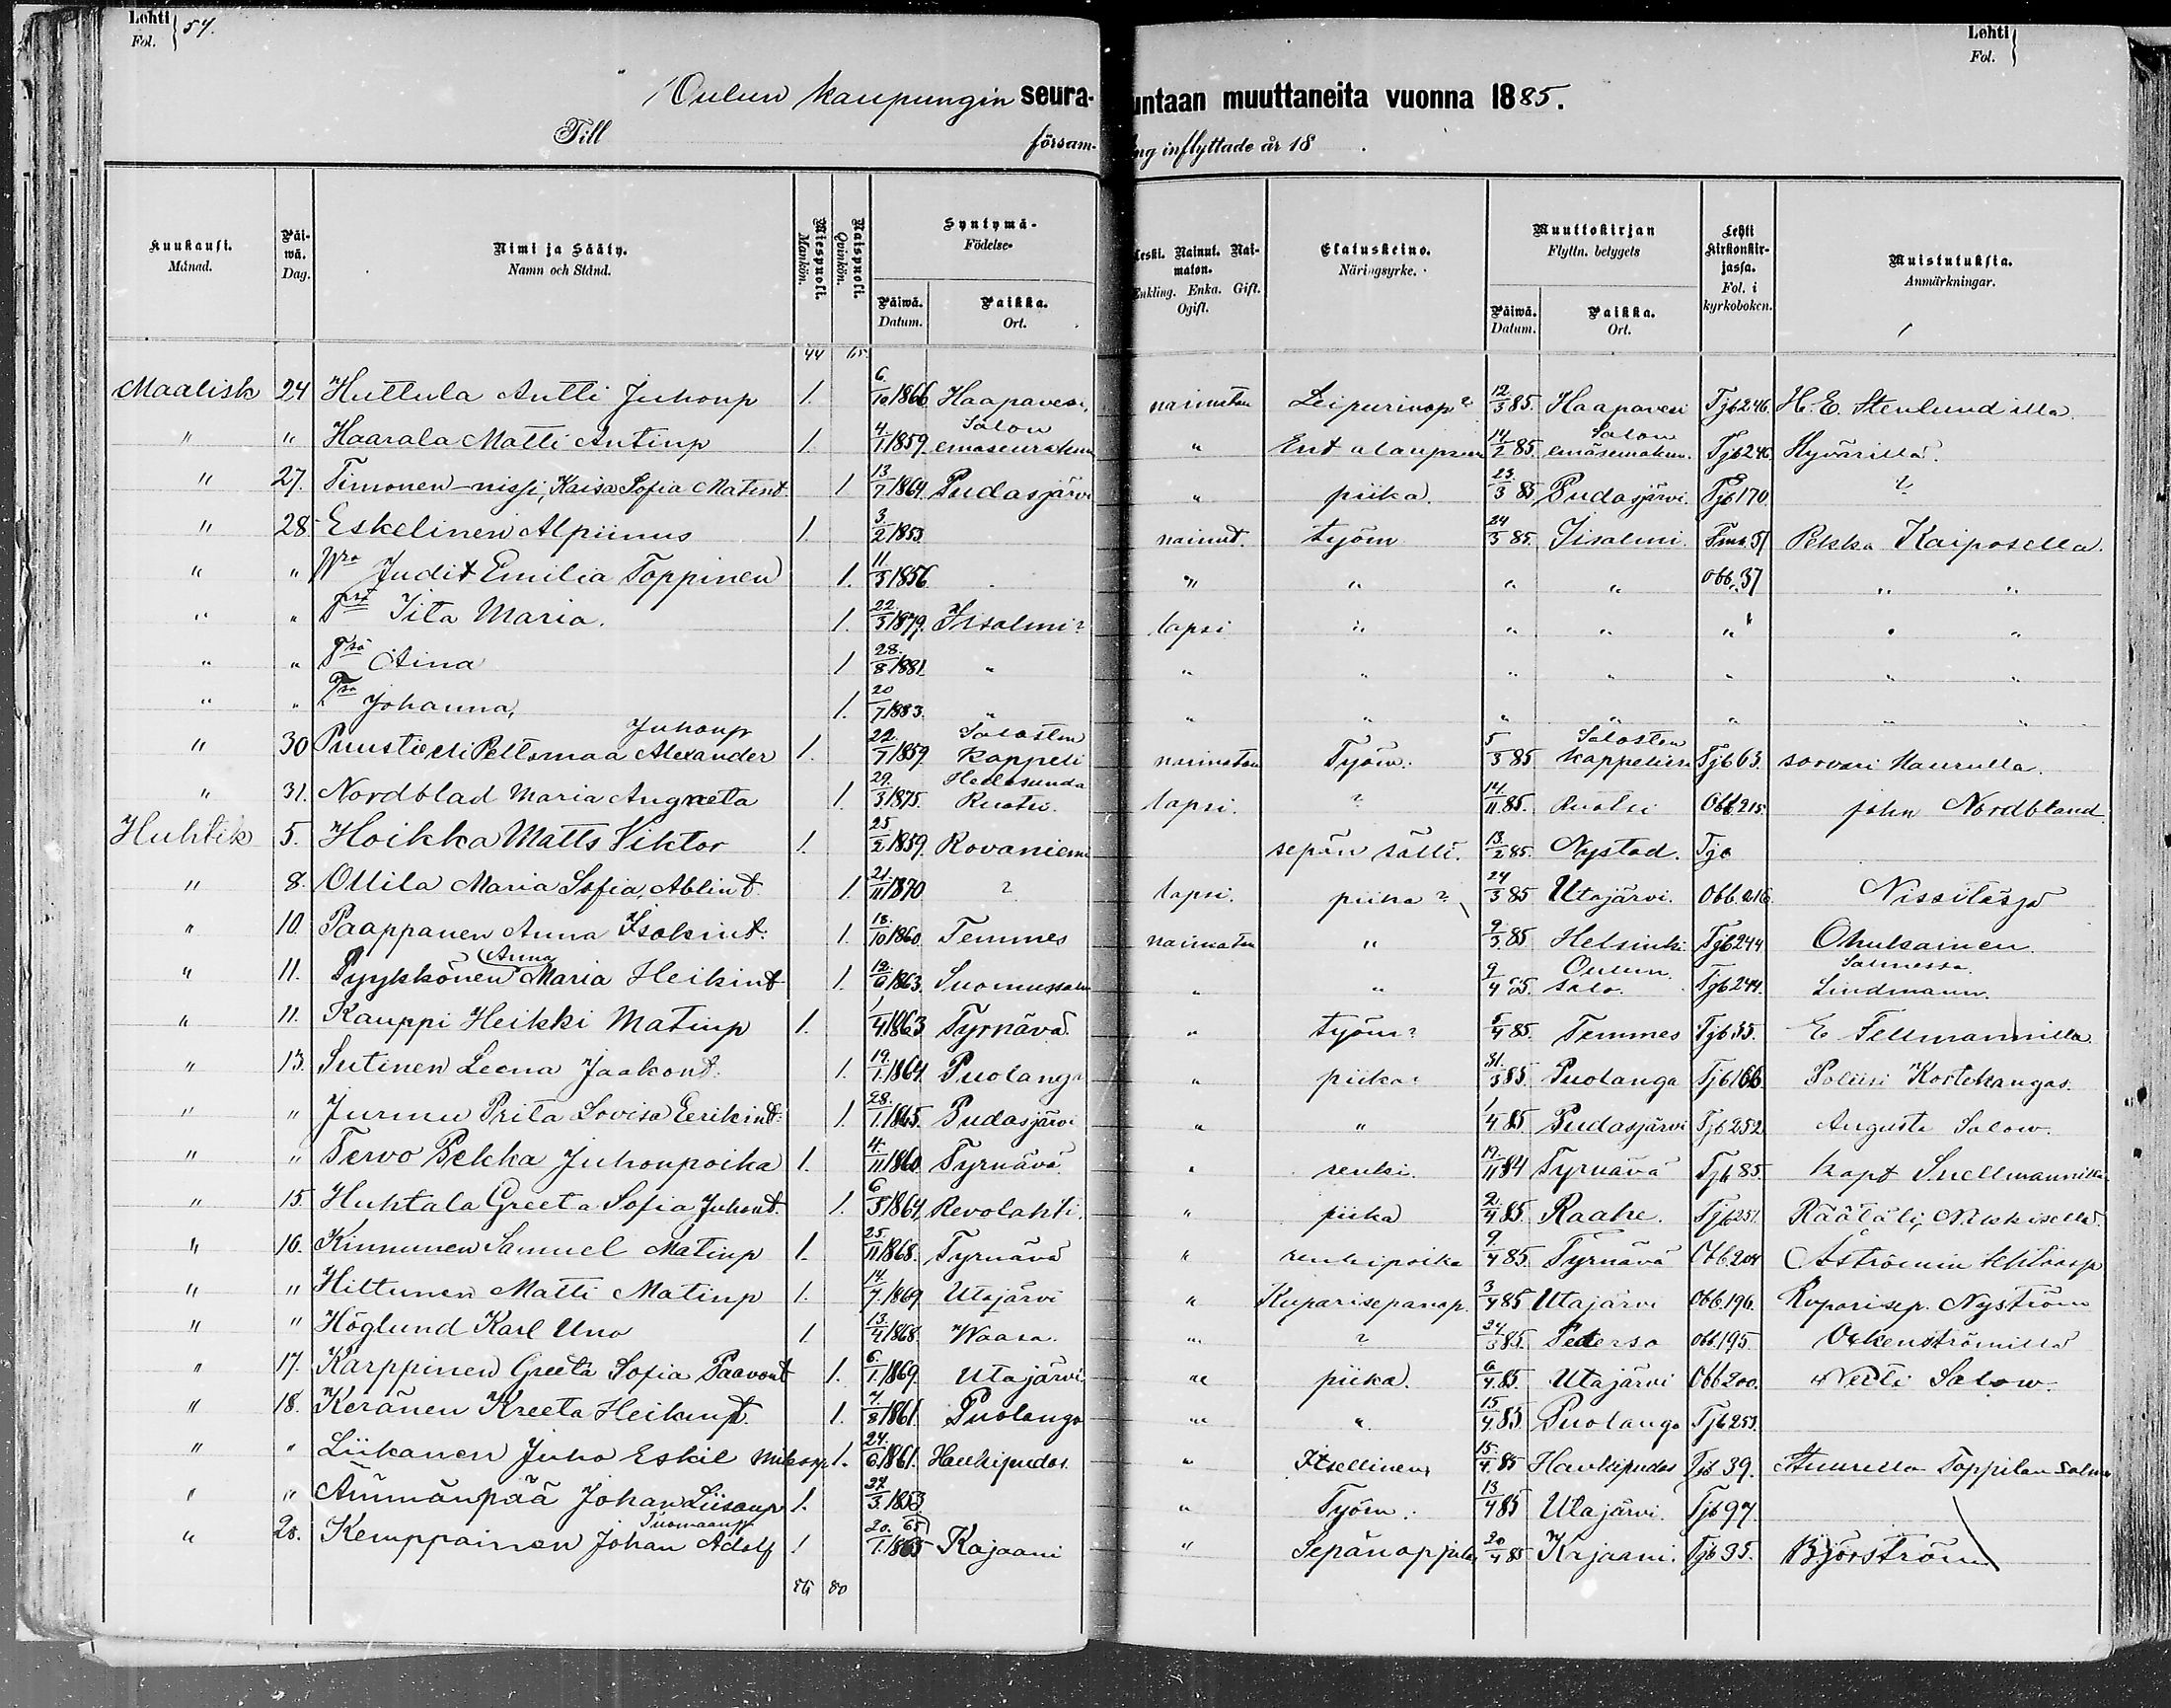 Lehti Fol. } 57. Lehti Fol. }
Oulun kaupungin seura- untaan muuttaneita vuonna 1885.
Till försam- ng inflyttade år 18 .
Kuukausi. Månad. Päi-wä. Dag. Nimi ja Sääty. Namn och Stånd. Miespuoli. Mankön. Waispuoli. Qvinkön. Syntymä- Födelse- Päiwä. Datum. Paikka. Ort. Leski. Nainut. Nai-maton. Enkling. Enka. Gift. Ogift. Elatuskeino. Näringsyrke. Muuttokirjan Flyttn. betygets Päiwä. Datum. Paikka. Ort. Lehti Kirkonkir-jassa. Fol. i kyrkoboken. Muistutuksia. Anmärkningar.
44 65.
Maalisk 24 Huttula Antti Juhonp 1. 6/10 1866 Haapavesi, naimaton Leipurinop? 12/3 85. Haapavesi Tjb 246. H. E. Stenlund illa.
" " Haarala Matti Antinp 1. 4/1 1859. Salon emäseurakun " 14/2 85 Salon emäseurakun. Tjb 246 Hyvärillä.
" 27. Timonen-nissi, Kaisa Sofia Matint. 1 13/7 1864. Pudasjärvi " piika. 23/3 85 Pudasjärvi. Tjb 170. ?
" 28. Eskelinen Alpiinus 1 3/2 1855 nainut. työm 24/3 85. Iisalmi. 51 Pekka Kaiposella.
" " Wmo Judit Emilia Toppinen 1. 11/5 1856 " " " " Obb. 37 " "
" " Iita Maria. 1. 22/5 1879. Iisalmi? lapsi " " " " " "
" " Aina 1 28/8 1881 " " " " " " " "
" " Johanna, 1. 20/7 1883. " " " " " " " "
" 30 Puustieli Peltomaa Alexander Juhonp 1. 22/7 1859 Saloisten kappeli naimaton Työm. 5/3 85 Saloisten kappelissa Tjb 63. sorvari Haurulla.
" 31. Nordblad Maria Augneta 1. 29/3 1875. Hedesunda Ruotsi. lapsi. ? 14/11 85. Ruotsi Obb 215. john Nordbland.
Huhtik 5. Hoikka Matts Viktor 1. 25/2 1859. Rovaniemi sepän sälli. 13/2 85. Nystad. Tjb
" 8. Ollila Maria Sofia, Ablint. 1. 21/11 1870 ? lapsi. piika? 24/3 85 Utajärvi. Obb. 216
" 10. Paappanen Anna Isakint: 1. 18/10 1860. Temmes naimaton " 9/3 85 Helsinki. Tjb 244 Ohukainen.
" 11. Pyykkönen Anna Maria Heikint 1. 12/6 1863. Suomussalm " " 9/4 85. Oulun salo. Tjb 244. Salmessa. Lindmann.
" 11. Kauppi Heikki Matinp 1. 1/4 1863 Tyrnävä. " työm? 5/4 85. Temmes Tjb 35. E Fellmannilla.
" 13. Sutinen Leena Jaakont. 1. 19/1 1864 Puolanga " piika? 31/3 85. Puolanga Tjb 166 Poliisi Kortekangas.
" " Jurmu Prita Lovisa Eerikint. 1. 28/1 1865. Pudasjärvi " " 1/4 85 Pudasjärvi Tjb 252 Augusti Salow.
" " Tervo Pekka Juhonpoika 1. 4/11 1860. Tyrnävä. " renki. 17/11 84 Tyrnävä Tjb 85. kapt Snellmannilla
" 15. Huhtala Greeta Sofia Juhont. 1. 6/5 1864, Revolahti. " piika 2/4 85 Raahe. Tjb 251. Räätäli
" 16. Kinnunen Samuel Matinp 1. 25/11 1868. Tyrnävä " renkipoika 9/4 85. Tyrnävä Obb 204 Åströmin
" " Hiltunen Matti Matinp 1. 14/7 1869 Utajärvi " Kuparisepänop. 3/4 85 Utajärvi Obb. 196. Kuparisep. Nyström
" " Höglund Karl Uno 1 13/4 1868. Waasa. " ? 24/3 85. Pederso Obb 195.
" 17. Karppinen Greeta Sofia Paavont 1. 6/1 1869. Utajärvi " piika. 6/4 85. Utajärvi Obb 200. Salow.
" 18. Keränen Kreeta Heikint. 1. 7/8 1861. Puolanga " " 15/4 85 Puolanga Tjb 253.
" " Liikanen Juho Eskil 1. 24/6 1861. Haukipudas. " Itsellinen, 15/4 85 Haukipudas Tjb 39. Toppilan Salm
" " Ämmänpää Johan Liisanp 1. 27/3 1853 " Työm. 13/4 85 Utajärvi. Tjb 97.
" 20. Kemppainen Johan Adolf Tuomaanp 1 20/1 1865 65 Kajaani " Sepänoppilas 20/4 85 Kajaani. Tjb 35. Björström
56 80